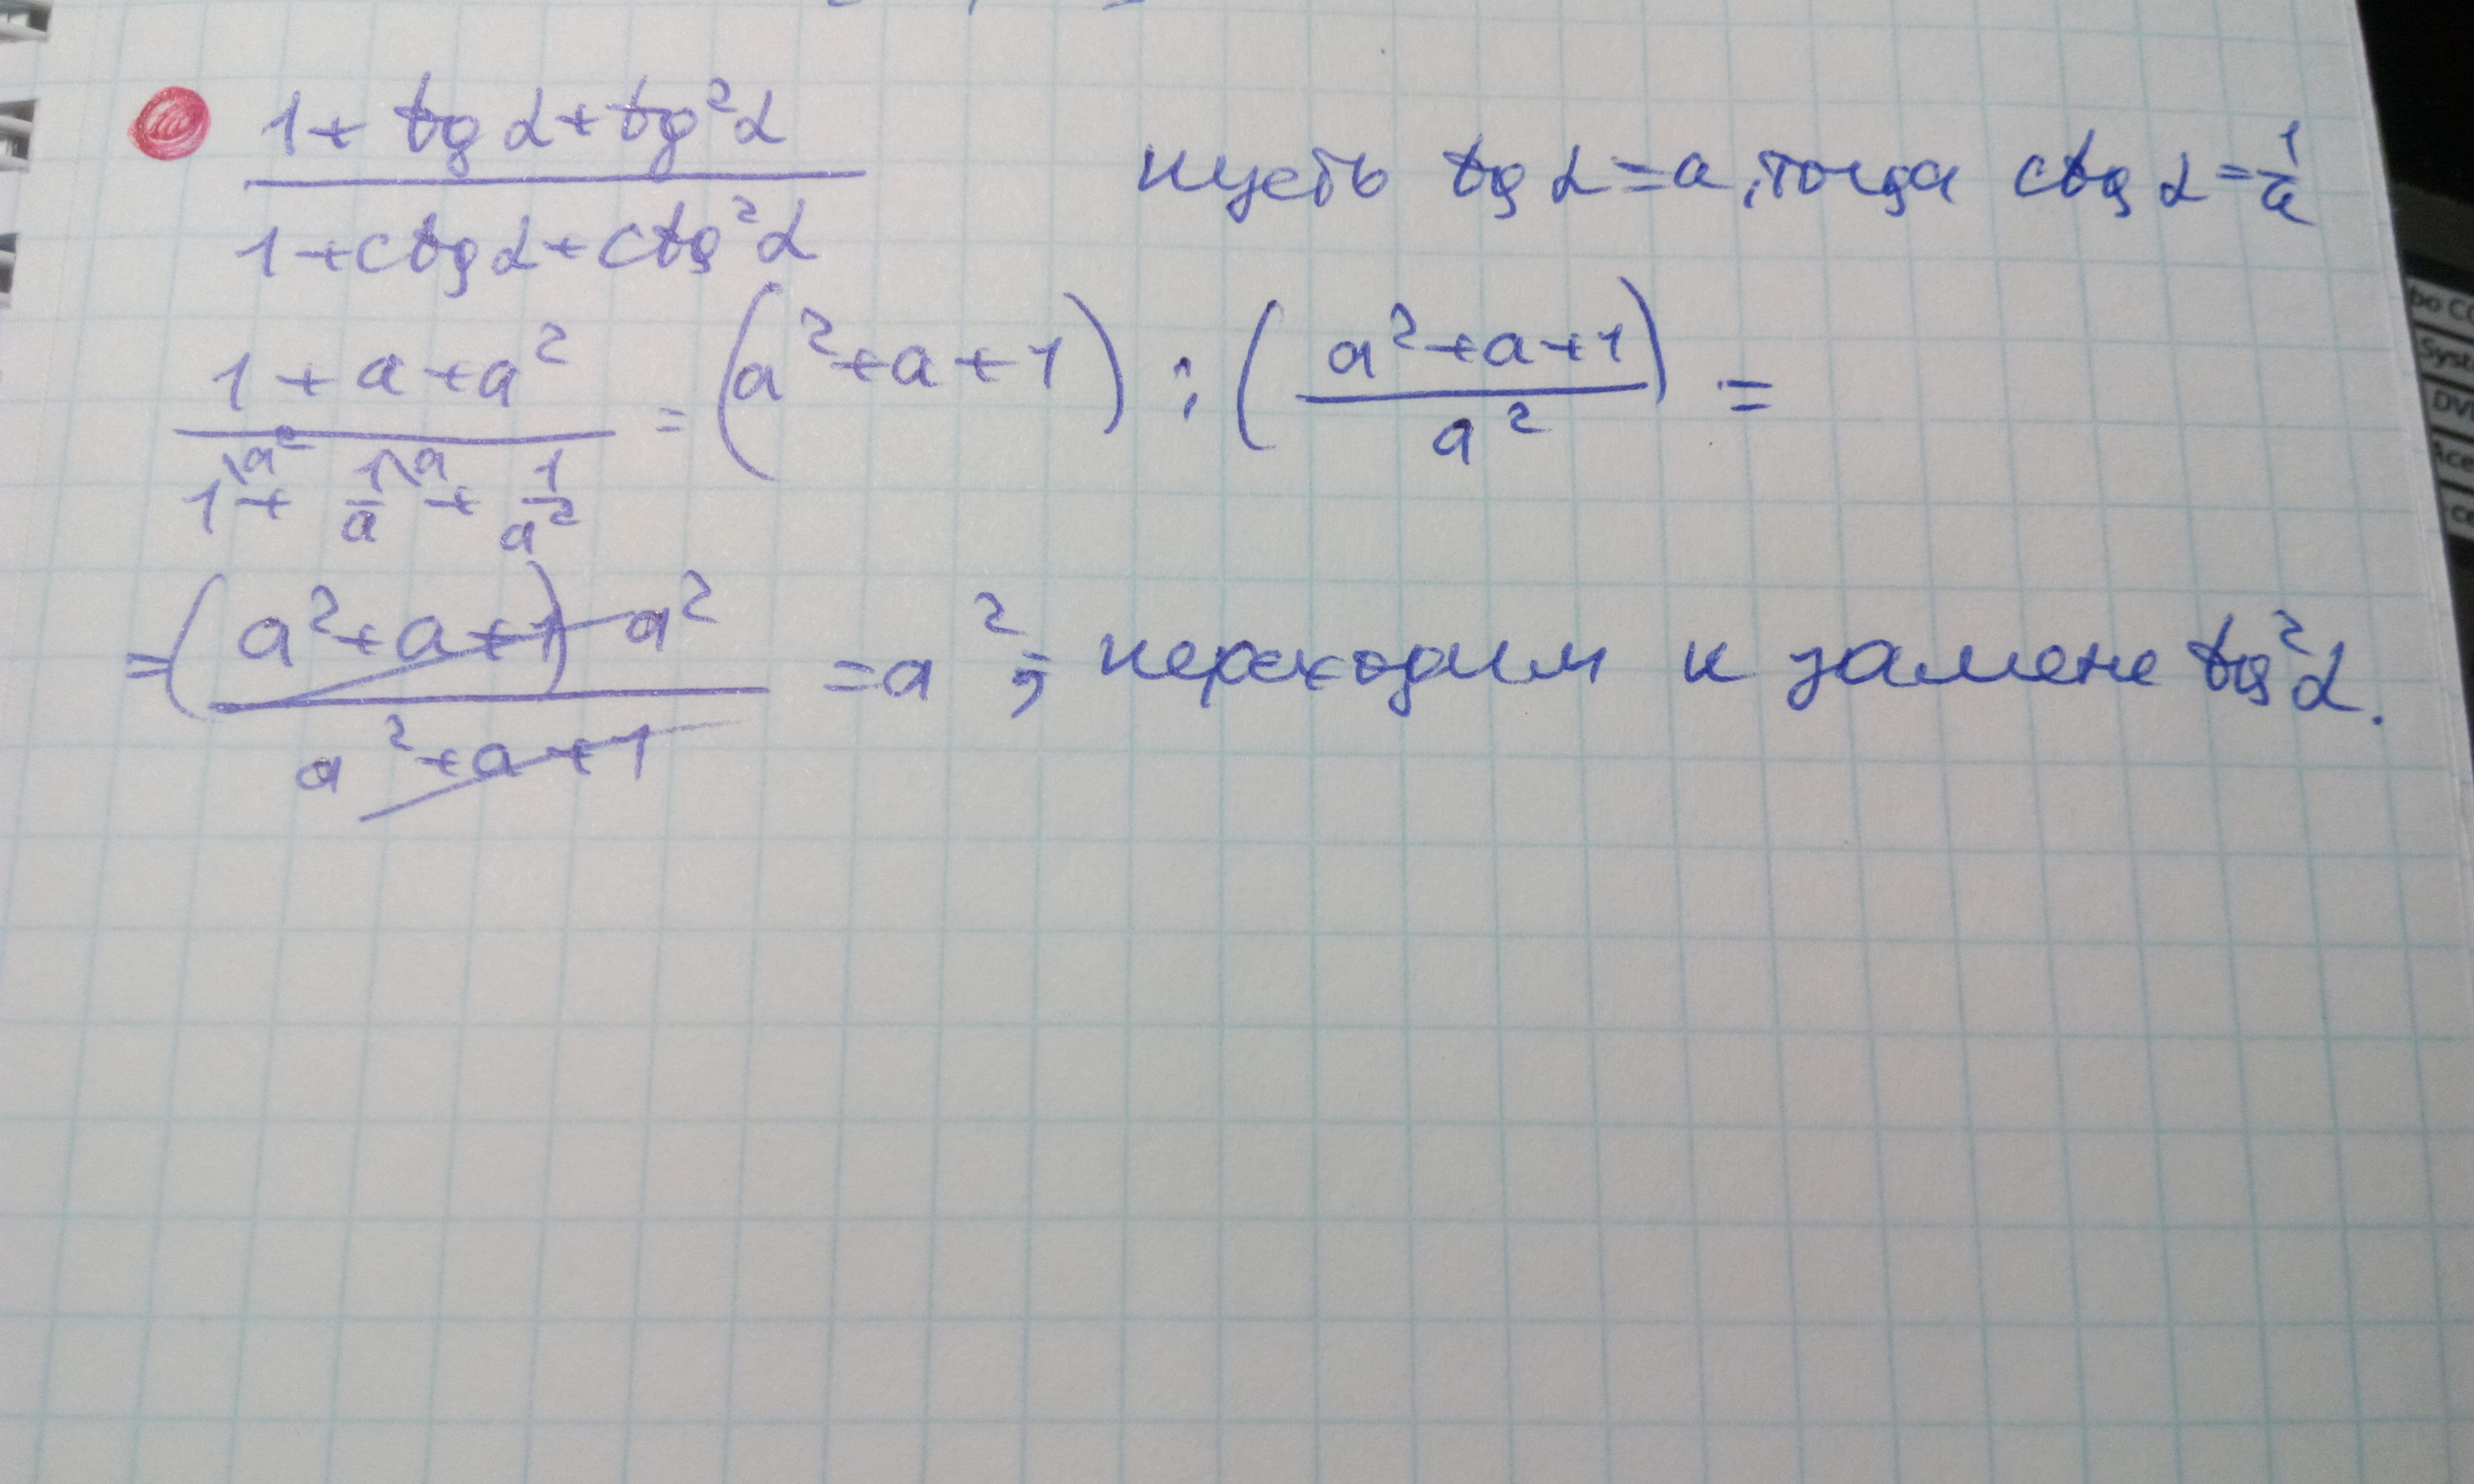 1 + tg α + tg²α
1 + ctg α + ctg²α
пусть tg α = a, тогда ctg α = 1/a
1 + a + a²
1\a² + 1/a\a + 1/a²
= (a² + a + 1) : (a² + a + 1 / a²) =
= (a² + a + 1) a² / a² + a + 1 = a²; переходим к замене tg²α.
Syst
DV
Ace